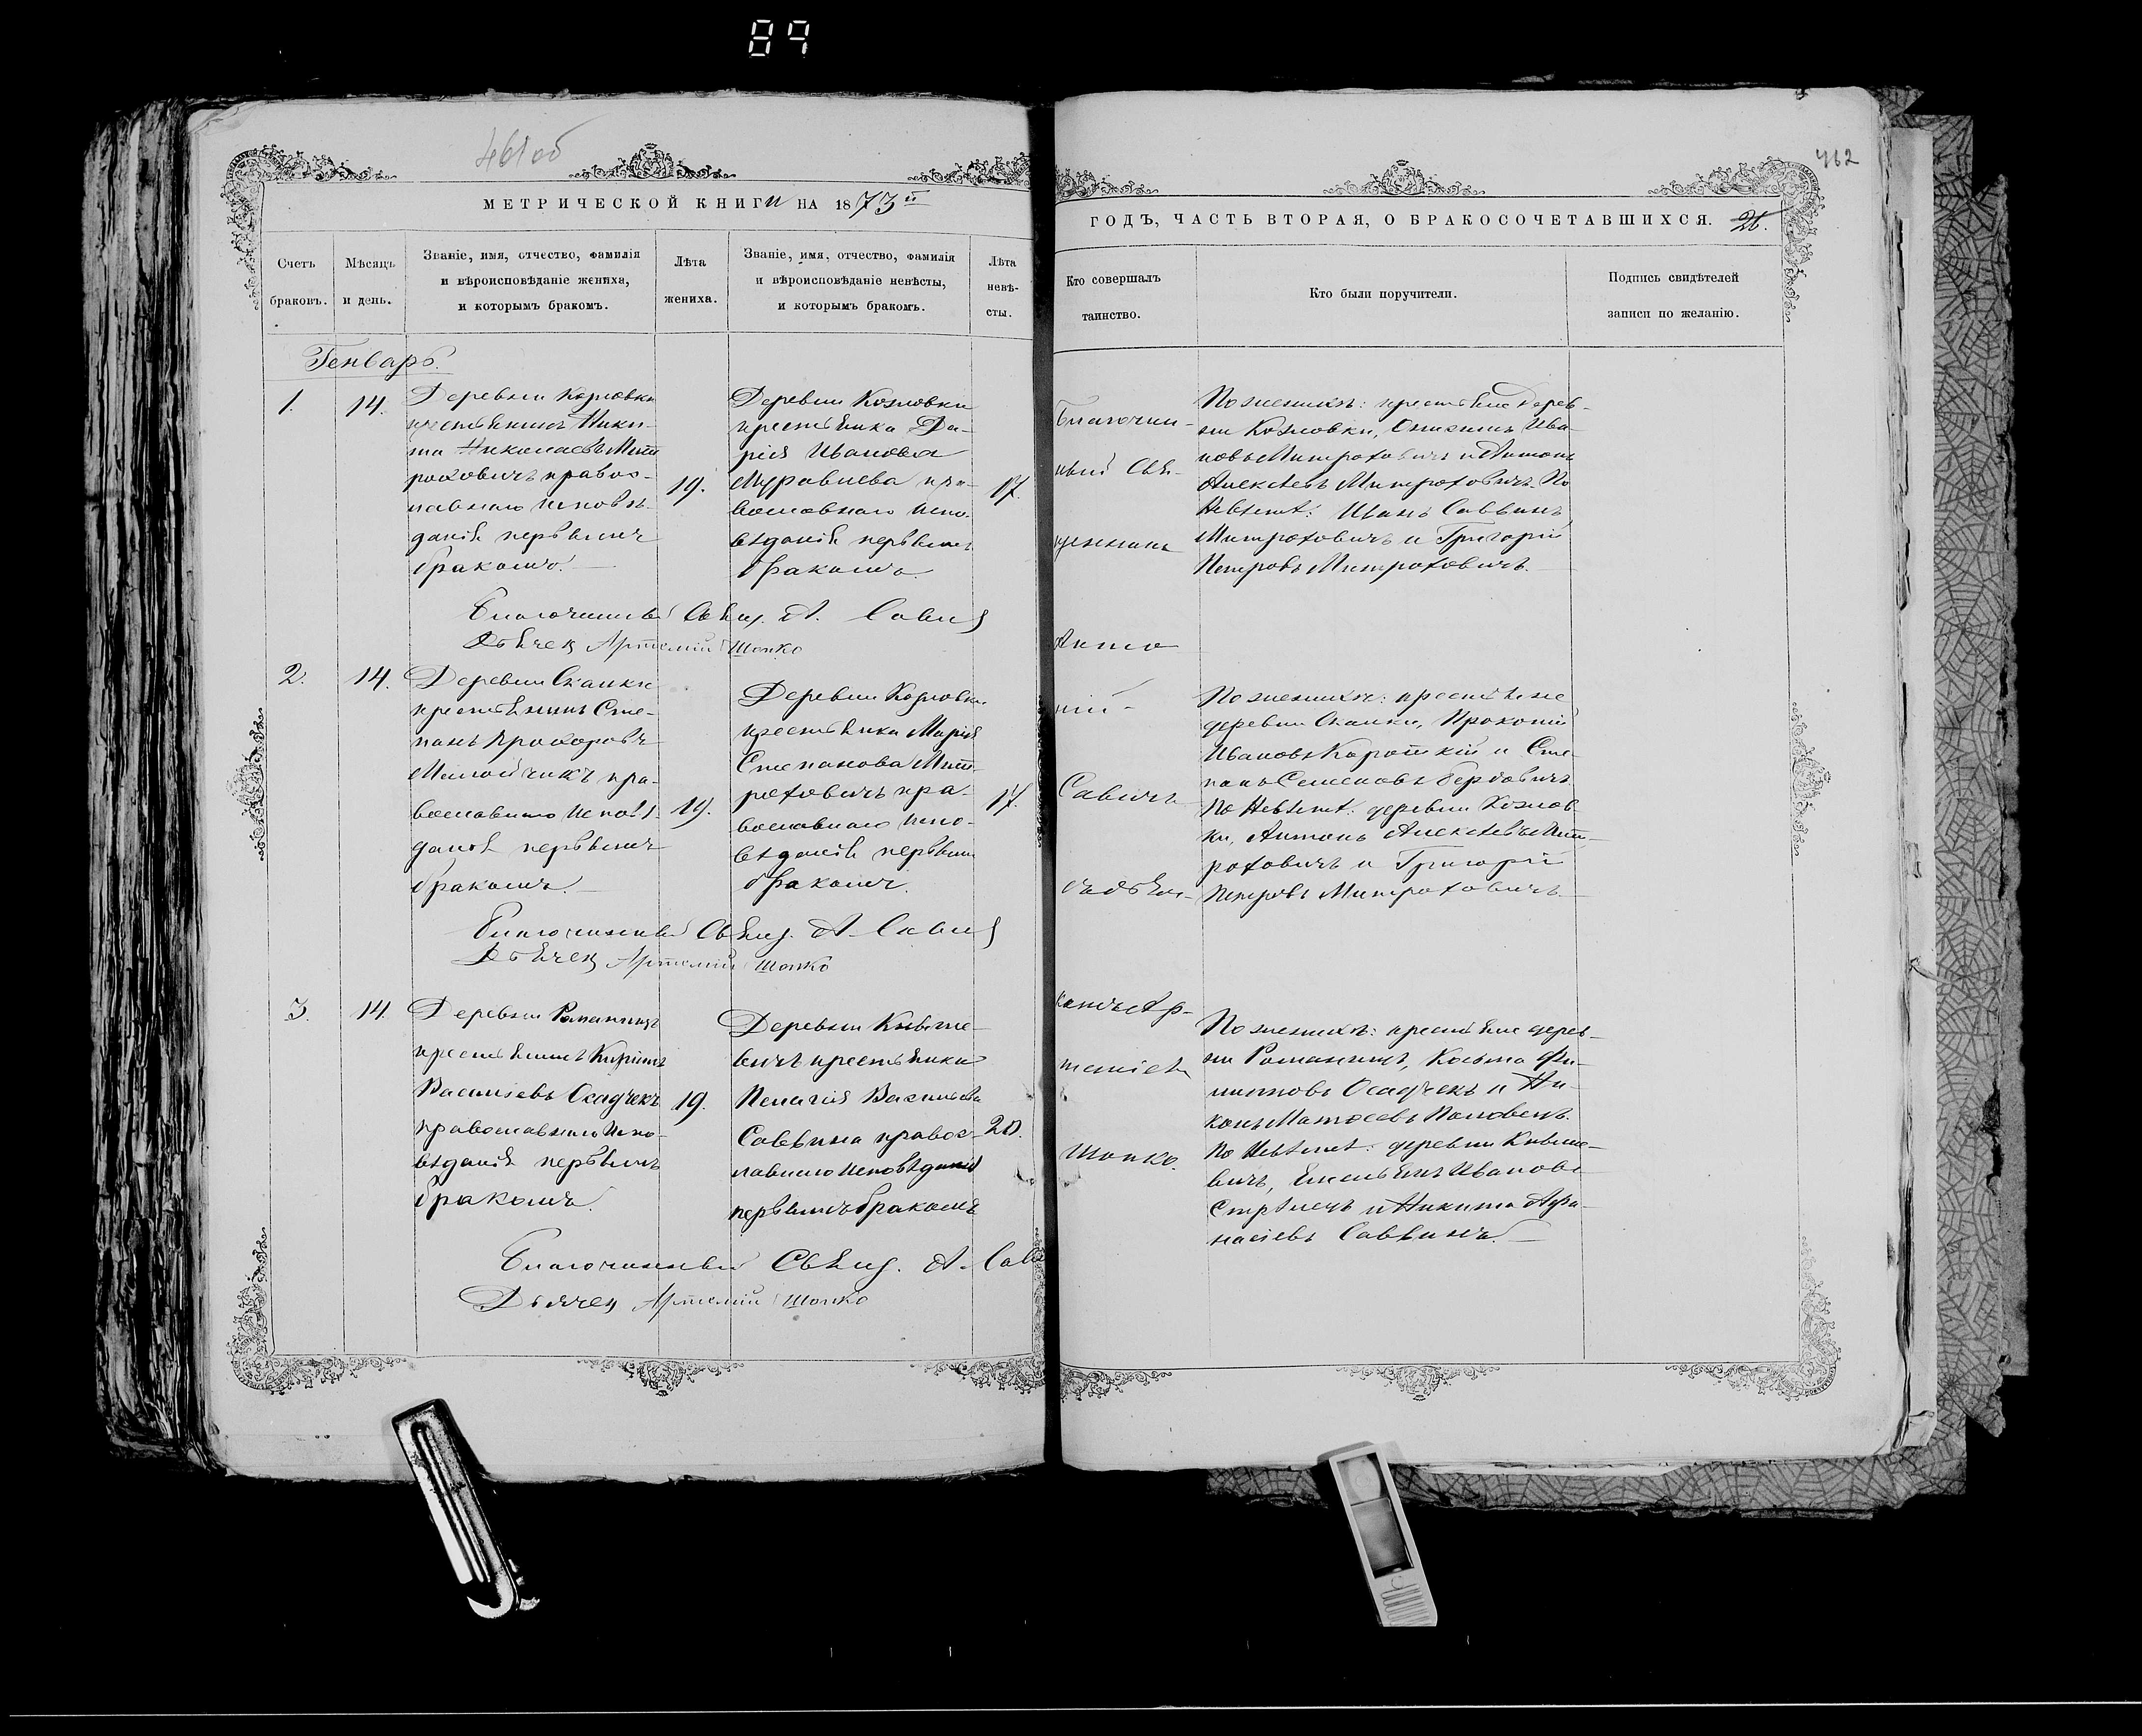 89
461об
462
МЕТРИЧЕСКОЙ КНИГИ НА 1873й
ГОДЪ, ЧАСТЬ ВТОРАЯ, О БРАКОСОЧЕТАВШИХСЯ.
Счетъ браковъ.
Мѣсяцъ и день.
Званіе, имя, отчество, фамилія
и вѣроисповѣданіе жениха,
и которымъ бракомъ.
Лѣта
жениха.
Званіе, имя, отчество, фамилія
и вѣроисповѣданіе невѣсты,
и которымъ бракомъ.
Лѣта
невѣ-
сты.
Кто совершалъ
таинство.
Кто были поручители.
Подпись свидѣтелей
записи по желанію.
Генварь.
1.
14.
Деревни Козловки
крестьянинъ Ники-
та Николаевъ Мит
роховичъ правос-
лавнаго исповѣ-
данія первымъ
бракомъ.
19.
Деревни Козловки
крестьянка Да-
рія Иванова
Муравиева пра-
вославнаго испо-
вѣданія первымъ
бракомъ.
17.
Благочин-
ный Свя-
щенникъ
Анто
ній
Савичъ
съ дьяч-
комъ Ар-
теміемъ
Шопко.
По женихѣ: крестьяне дерев-
ни Козловки, Ива-
новъ Митроховичъ и Антонъ
Алексѣевъ Митроховичъ. По
невѣстѣ: Саввинъ
Митроховичъ и Григорій
Петровъ Митроховичъ.
Благочинный Свящ. А. Савич
Дьячец Артемій Шопко
2.
14.
Деревни Скалки
крестьянинъ Сте-
панъ Прохоровъ
пра-
вославнаго исповѣ-
данія первымъ
бракомъ.
19.
Деревни Козловки
крестьянка Марія
Степанова Мит-
роховичъ пра-
вославнаго испо-
вѣданія первым
бракомъ.
17.
По женихѣ: крестьяне
деревни Скалки, Прокопій
Ивановъ Короткій и Сте-
панъ Семеновъ
По невѣстѣ: деревни Козлов
ки, Антонъ Алексѣевъ Мит-
роховичъ и Григорій
Петровъ Митроховичъ.
Благочинный Свящ. А. Савич
Дьячец Артемій Шопко
3.
14.
Деревни Романищъ
крестьянинъ Кирилъ
Василіевъ Осадчекъ
православнаго испо-
вѣданія первымъ
бракомъ.
19.
Деревни Кивыше-
вичъ крестьянка
Пелагія Васильева
Саввина правос-
лавнаго исповѣданія
первымъ бракомъ
20.
По женихѣ: крестьяне дерев-
ни Романищъ, Косьма Фи-
липповъ Осадчекъ и Ни-
конъ Матѳеевъ Половецъ.
По невѣстѣ: деревни Кивыше-
вичъ, Емельянъ Ивановъ
Стрѣлецъ и Никита Афа-
насіевъ Саввинъ.
Благочинный Свящ. А. Сави
Дьячец Артемій Шопко